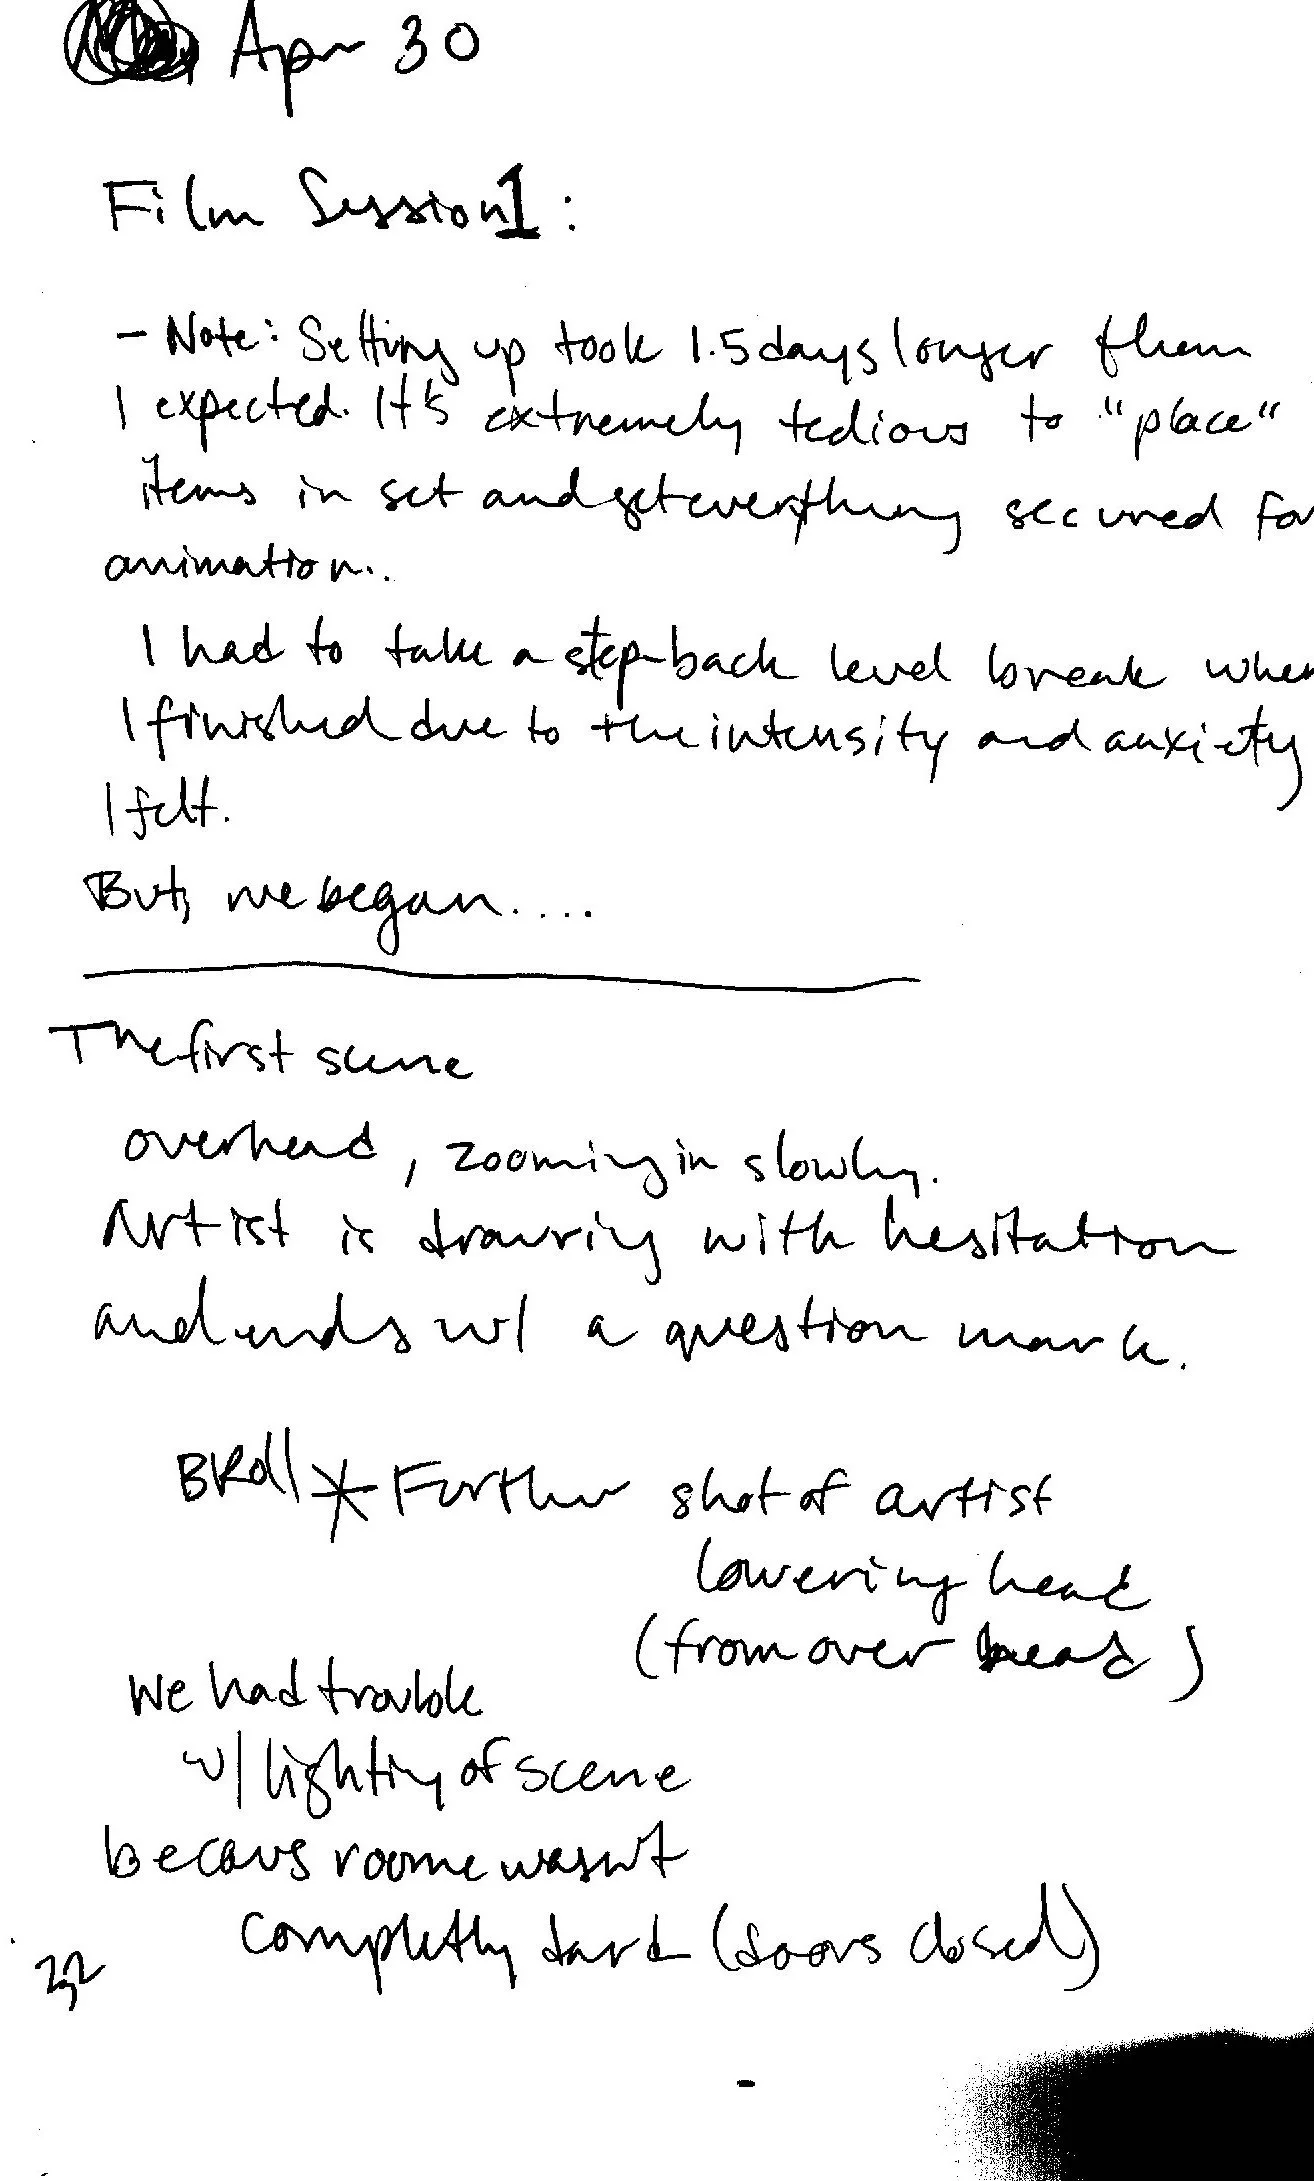 Apr 30
Film Session 1:
- Note: Setting up took 1.5 days longer than
I expected. It's extremely tedious to "place"
items in set and get everything secured for
animation..
I had to take a step-back level break when
I finished due to the intensity and anxiety
I felt.
But, we began....
The first scene
overhead, zooming in slowly.
Artist is drawing with hesitation
and ends w/ a question mark.
BRoll * Further shot of artist
lowering head
(from over head)
We had trouble
w/ lighting of scene
becaus roome wasn't
completly dark (doors closed)